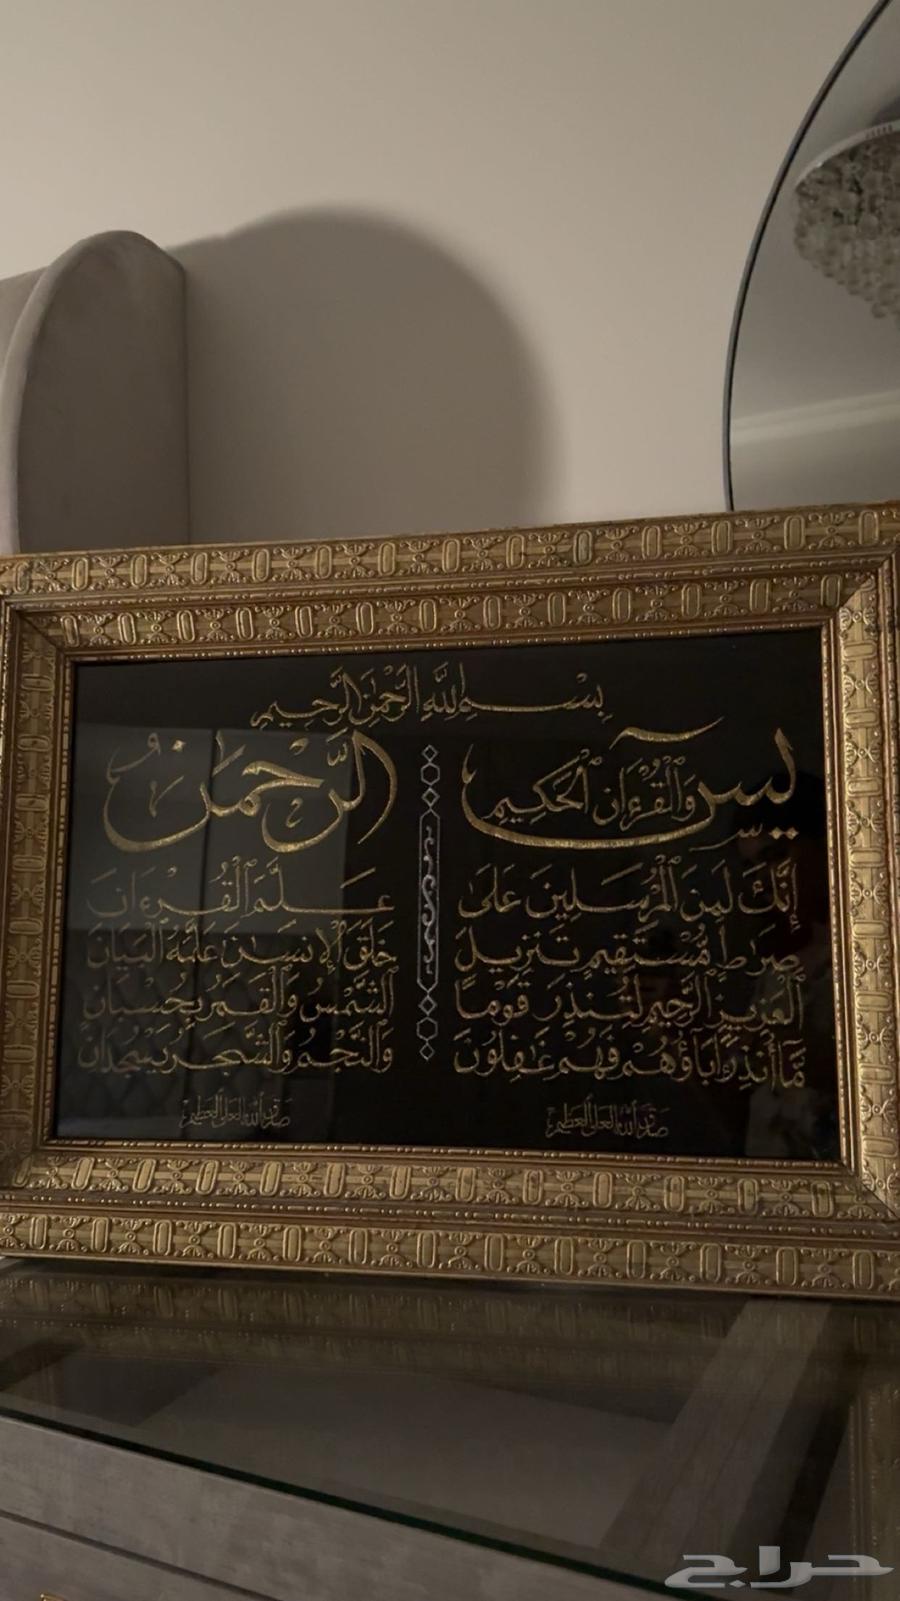 بِسْمِ اللَّهِ الرَّحْمَٰنِ الرَّحِيمِ
يسٓ وَالْقُرْءَانِ الْحَكِيمِ
إِنَّكَ لَمِنَ الْمُرْسَلِينَ عَلَىٰ
صِرَاطٍ مُّسْتَقِيمٍ تَنزِيلَ
الْعَزِيزِ الرَّحِيمِ لِتُنذِرَ قَوْمًا
مَّا أُنذِرَ ءَابَاؤُهُمْ فَهُمْ غَافِلُونَ
صدق الله العلي العظيم
الرَّحْمَٰنُ
عَلَّمَ الْقُرْءَانَ
خَلَقَ الْإِنسَانَ عَلَّمَهُ الْبَيَانَ
الشَّمْسُ وَالْقَمَرُ بِحُسْبَانٍ
وَالنَّجْمُ وَالشَّجَرُ يَسْجُدَانِ
صدق الله العلي العظيم
حراج